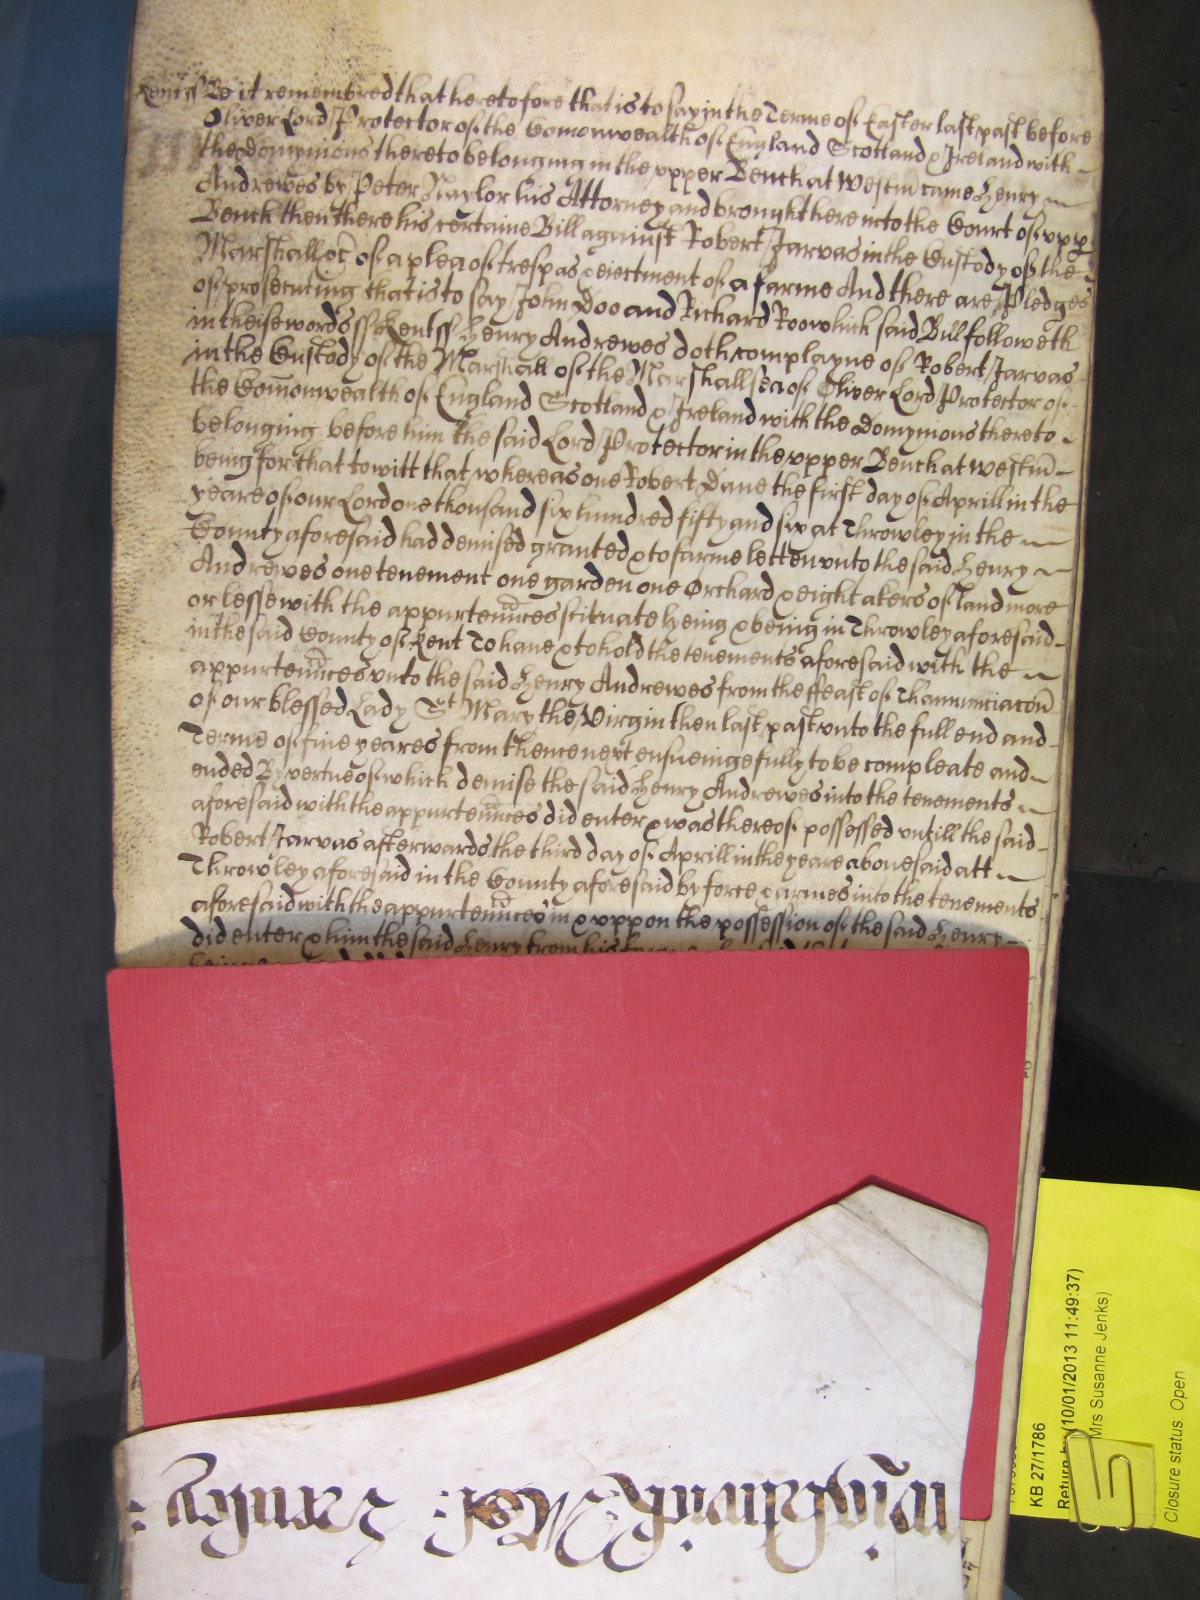 Kent ss Be it remembred that heretofore that is to say in the Terme of Easter last past before
Oliver Lord Protector of the Comonwealth of England Scotland & Ireland with
the domynions thereto belonging in the upper Bench at Westm came Henry
Andrewes by Peter Naylor his Attorney and brought here into the Court of upp
Bench then there his certaine Bill against Robert Jarvas in the Custody of the
Marshall &c of a plea of trespas & eiectment of a farme And there are Pledges
of prosecuting that is to say John Doo and Richard Roo which said Bill followeth
in theise words ss Kent ss Henry Andrewes doth complayne of Robert Jarvas
in the Custody of the Marshall of the Marshallsea of Oliver Lord Protector of
the Comonwealth of England Scotland & Ireland with the Domynions thereto
belonging before him the said Lord Protector in the upper Bench at Westm
being for that to witt that whereas one Robert Dane the first day of Aprill in the
yeare of our Lord one thousand six hundred fifty and six at Throwley in the
County aforesaid had demised granted & to farme letten unto the said Henry
Andrewes one tenement one garden one Orchard & eight akers of land more
or lesse with the appurtennces scituate lyeing & being in Throwley aforesaid
in the said County of Kent To have & to hold the tenements aforesaid with the
appurtennces unto the said Henry Andrewes from the ffeast of Thannunciacon
of our blessed Lady St Mary the Virgin then last past unto the full end and
Terme of five yeares from thence next ensueinge fully to be compleate and
ended By vertue of which demise the said Henry Andrewes into the tenements
aforesaid with the appurtennces did enter & was thereof possessed untill the said
Robert Jarvas afterwards the third day of Aprill in the yeare abovesaid att
Throwley aforesaid in the County aforesaid by force & armes into the tenements
aforesaid with the appurtennces in & uppon the possession of the said Henry
did enter & him the said Henry from his
KB 27/1786
Return by (10/01/2013 11:49:37)
Mrs Susanne Jenks)
Closure status: Open